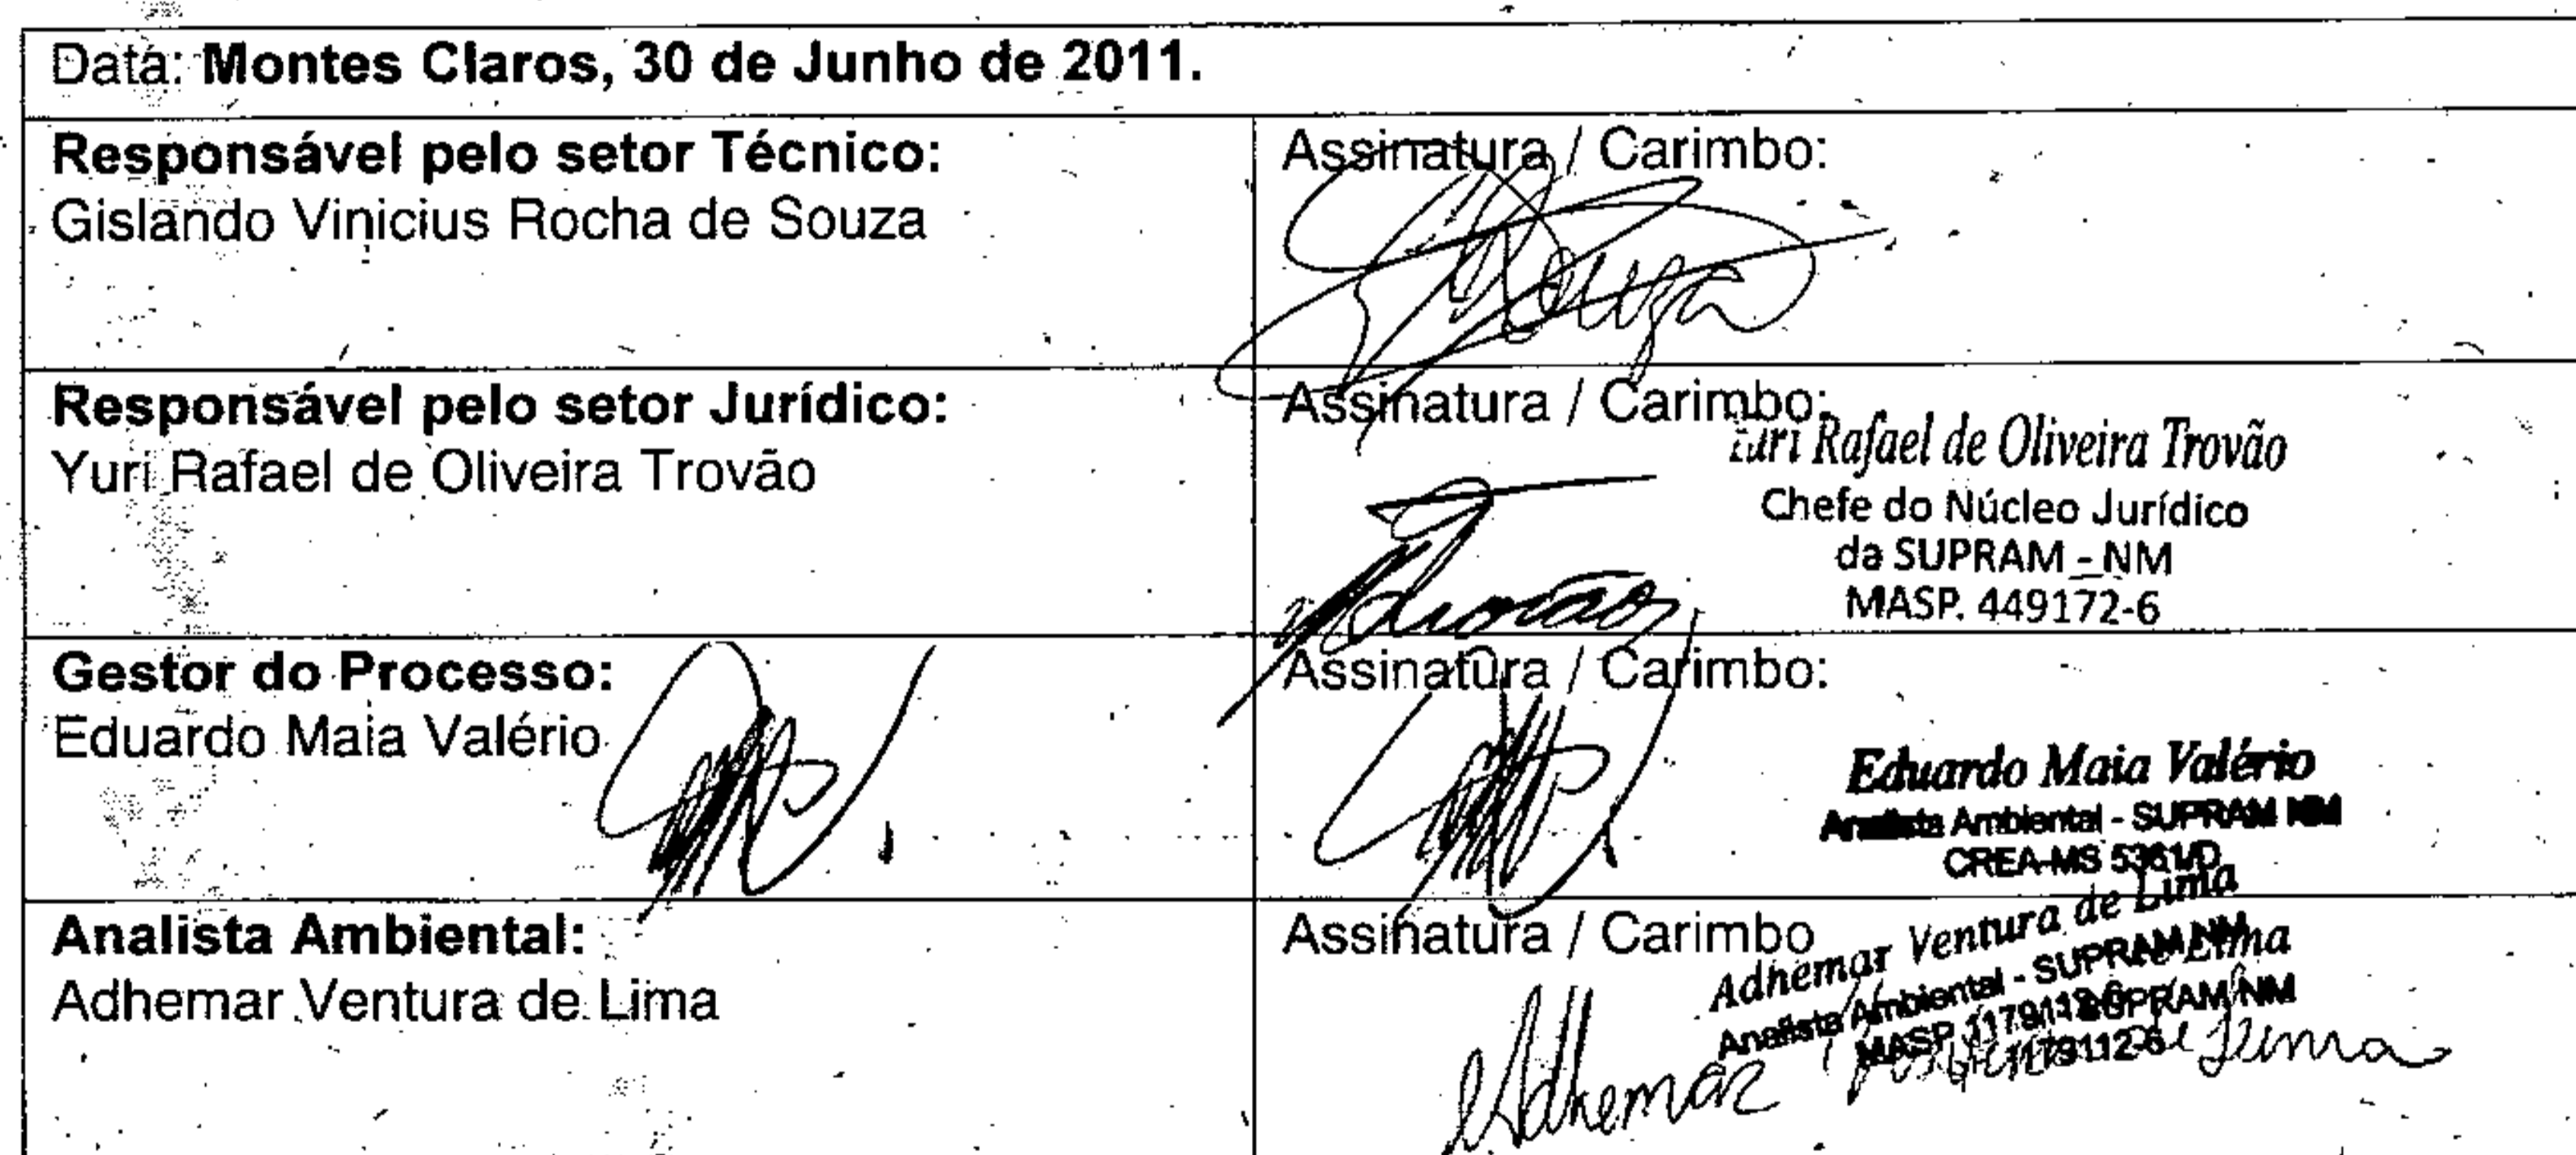 Data: Montes Claros, 30 de Junho de 2011.
Responsável pelo setor Técnico:
Gislando Vinicius Rocha de Souza
Assinatura / Carimbo:
Souza
Responsável pelo setor Jurídico:
Yuri Rafael de Oliveira Trovão
Assinatura / Carimbo:
Yuri Rafael de Oliveira Trovão
Chefe do Núcleo Jurídico
da SUPRAM - NM
MASP. 449172-6
Gestor do Processo:
Eduardo Maia Valério
Assinatura / Carimbo:
Eduardo Maia Valério
Analista Ambiental - SUPRAM NM
CREA-MS 5361/D
Analista Ambiental:
Adhemar Ventura de Lima
Assinatura / Carimbo
Adhemar Ventura de Lima
Analista Ambiental - SUPRAM NM
MASP 1179112-6
Lima
SUPRAM NM
1179112-6
Adhemar Ventura de Lima